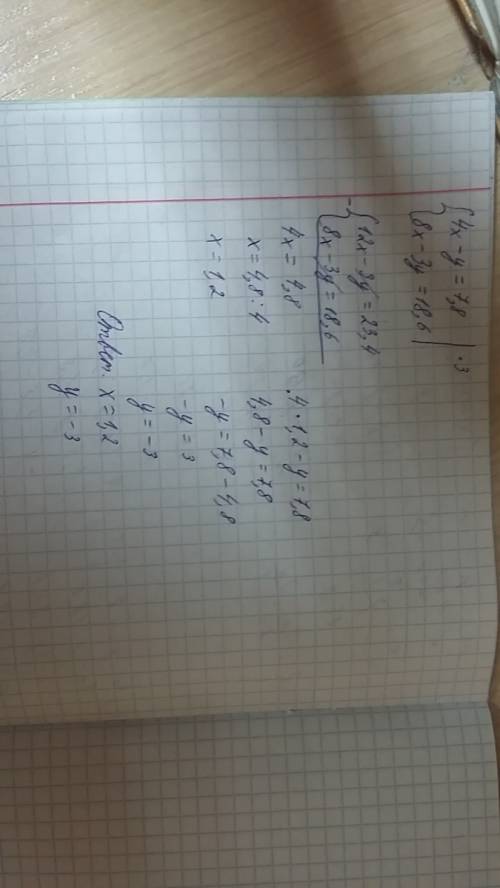 {4x - y = 7,8 | · 3
{8x - 3y = 18,6 |
- {12x - 3y = 23,4
{8x - 3y = 18,6
4x = 4,8
x = 4,8 : 4
x = 1,2
4 · 1,2 - y = 7,8
4,8 - y = 7,8
-y = 7,8 - 4,8
-y = 3
y = -3
Ответ. x = 1,2
y = -3